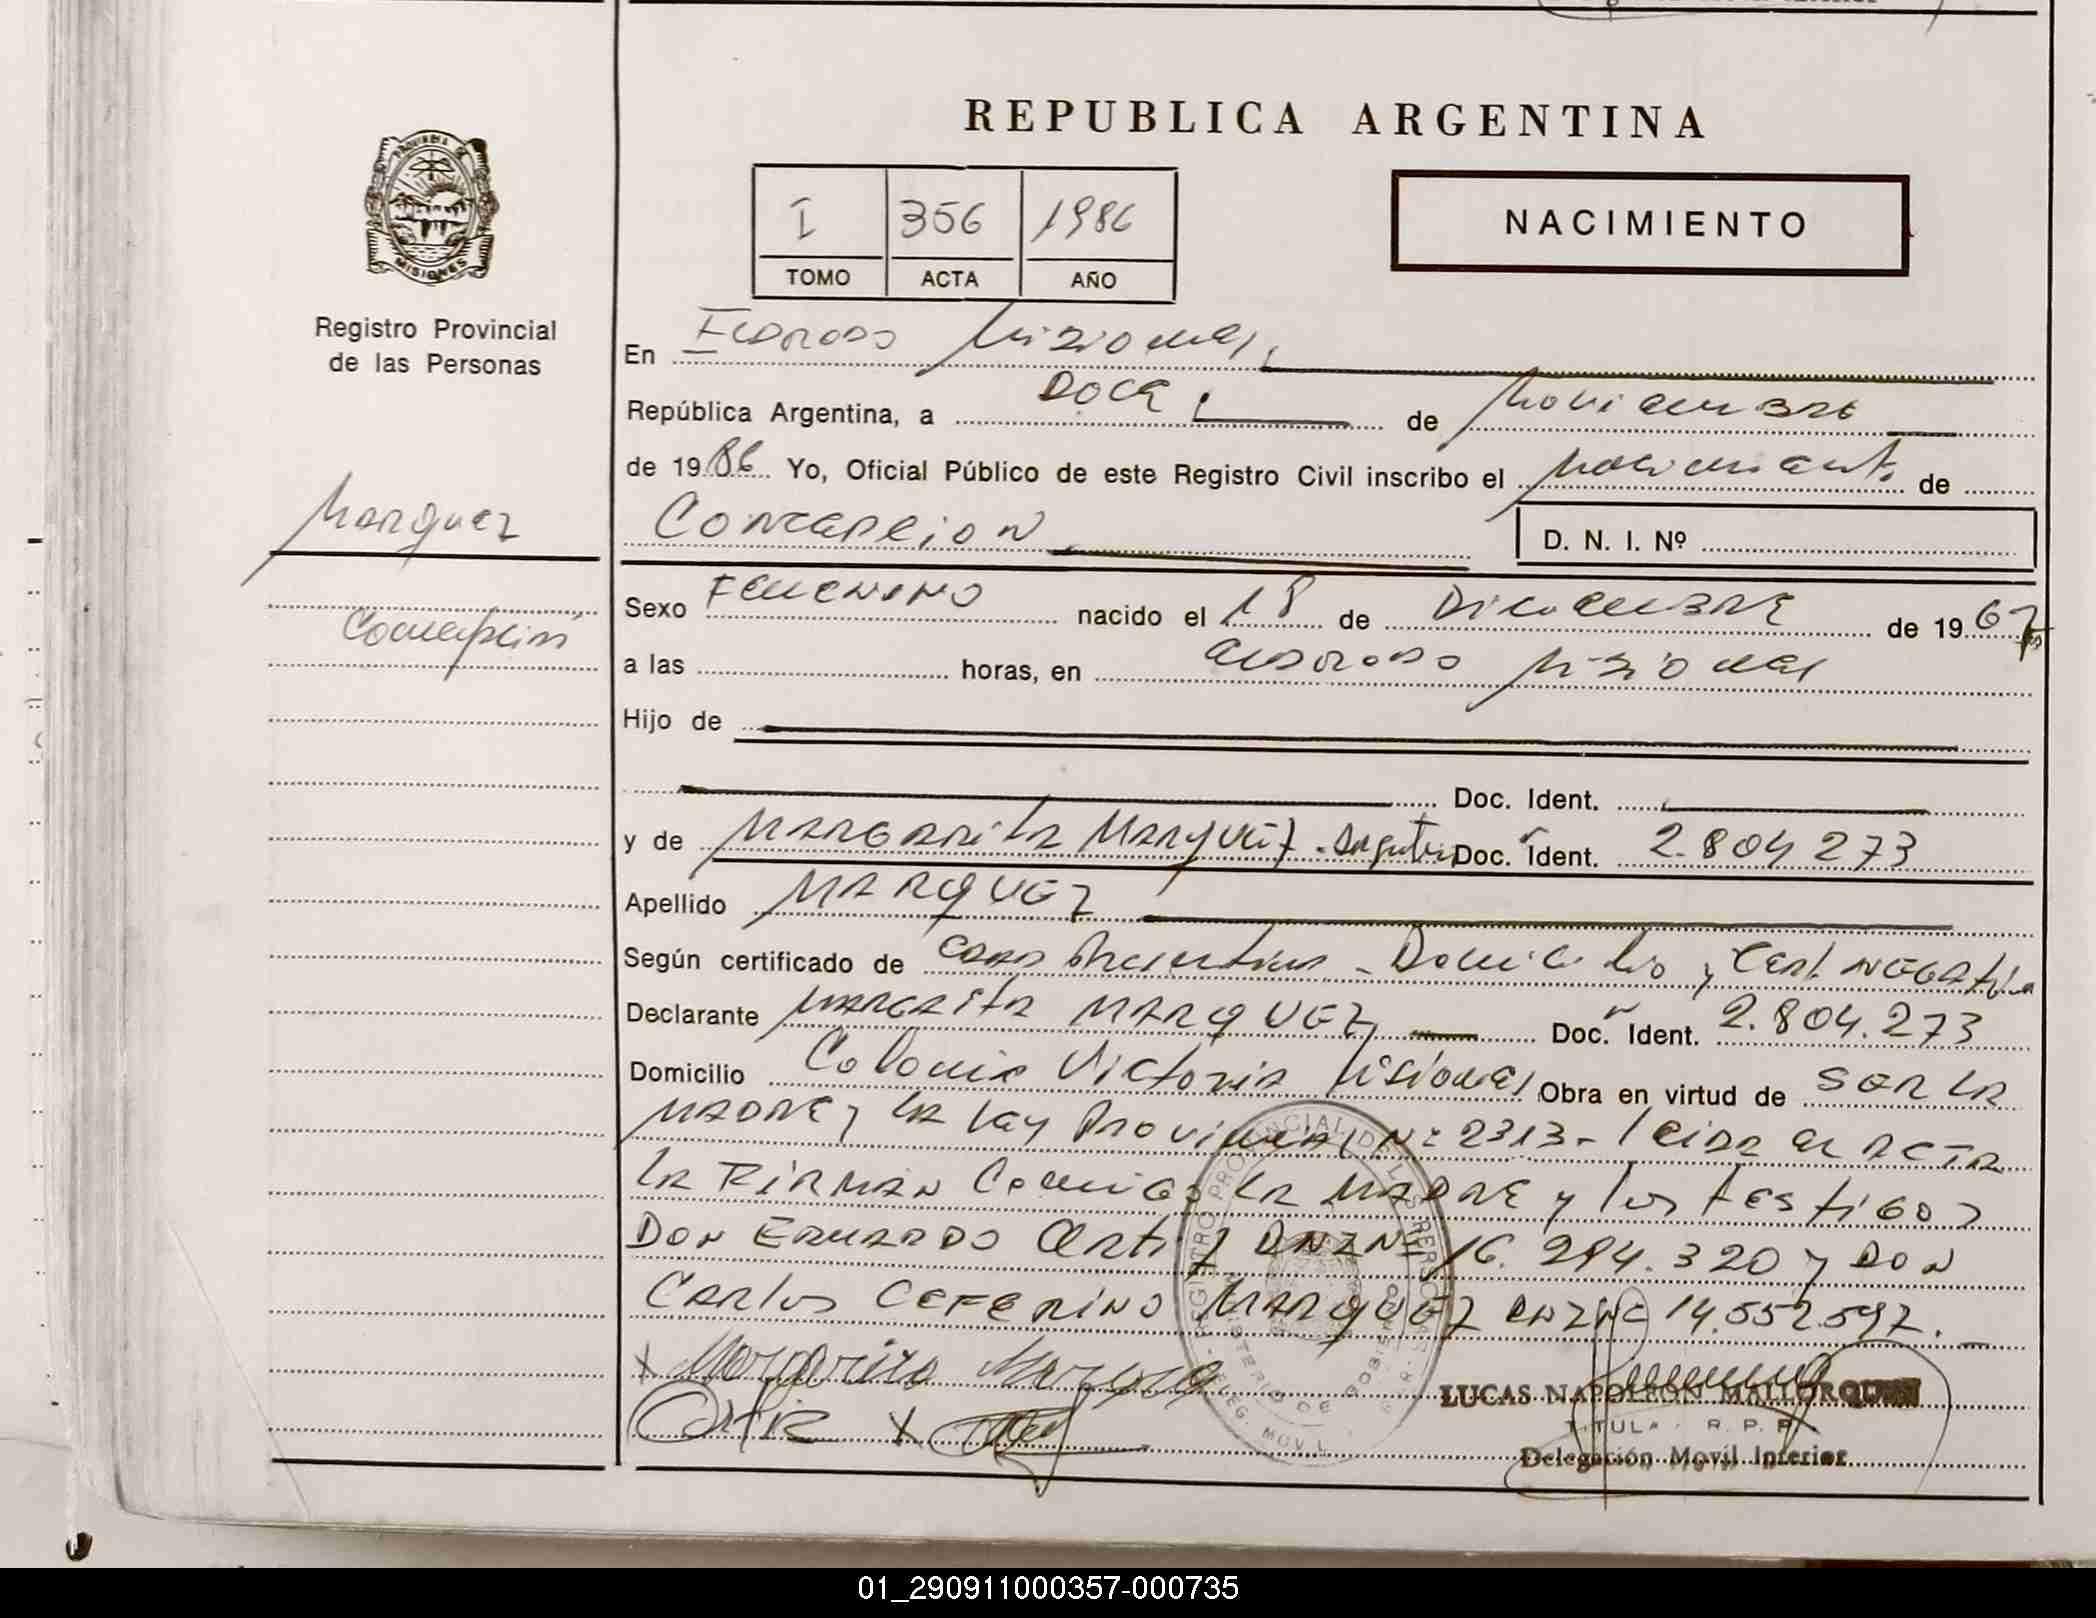 REPUBLICA ARGENTINA
I 356 1986
TOMO ACTA AÑO
NACIMIENTO
PROVINCIA DE
MISIONES
Registro Provincial
de las Personas
Marquez
Concepción
En Eldorado Misiones,
República Argentina, a Doce, de Noviembre
de 1986 Yo, Oficial Público de este Registro Civil inscribo el nacimiento de
Concepcion
D. N. I. Nº
Sexo Femenino nacido el 18 de Diciembre de 1967
a las horas, en eldorado Misiones
Hijo de
Doc. Ident.
y de MARGARITA MARQUEZ - Doc. Ident. 2.804 273
Apellido MARQUEZ
Según certificado de - Domicilio y Cert NEGATIVA
Declarante MARGARITA MARQUEZ Doc. Ident. 2.804.273
Domicilio Colonia Victoria Misiones Obra en virtud de SER LA
MADRE y LA Ley Provincial Nº 2313 - leida el ACTA
LA FIRMAN Conmigo LA MADRE y los testigos
DON EDUARDO Ortiz DNI Nº 16.294.320 y DON
CARLOS CEFERINO MARQUEZ DNI Nº 14.552.597.
x Margarita Marquez
Ortiz x
REGISTRO PROVINCIAL DE LAS PERSONAS
MINISTERIO DE GOBIERNO
DELEG. MOVIL
LUCAS NAPOLEON MALLORQUIN
TITULAR R. P. P.
Delegación Movil Interior
01_290911000357-000735